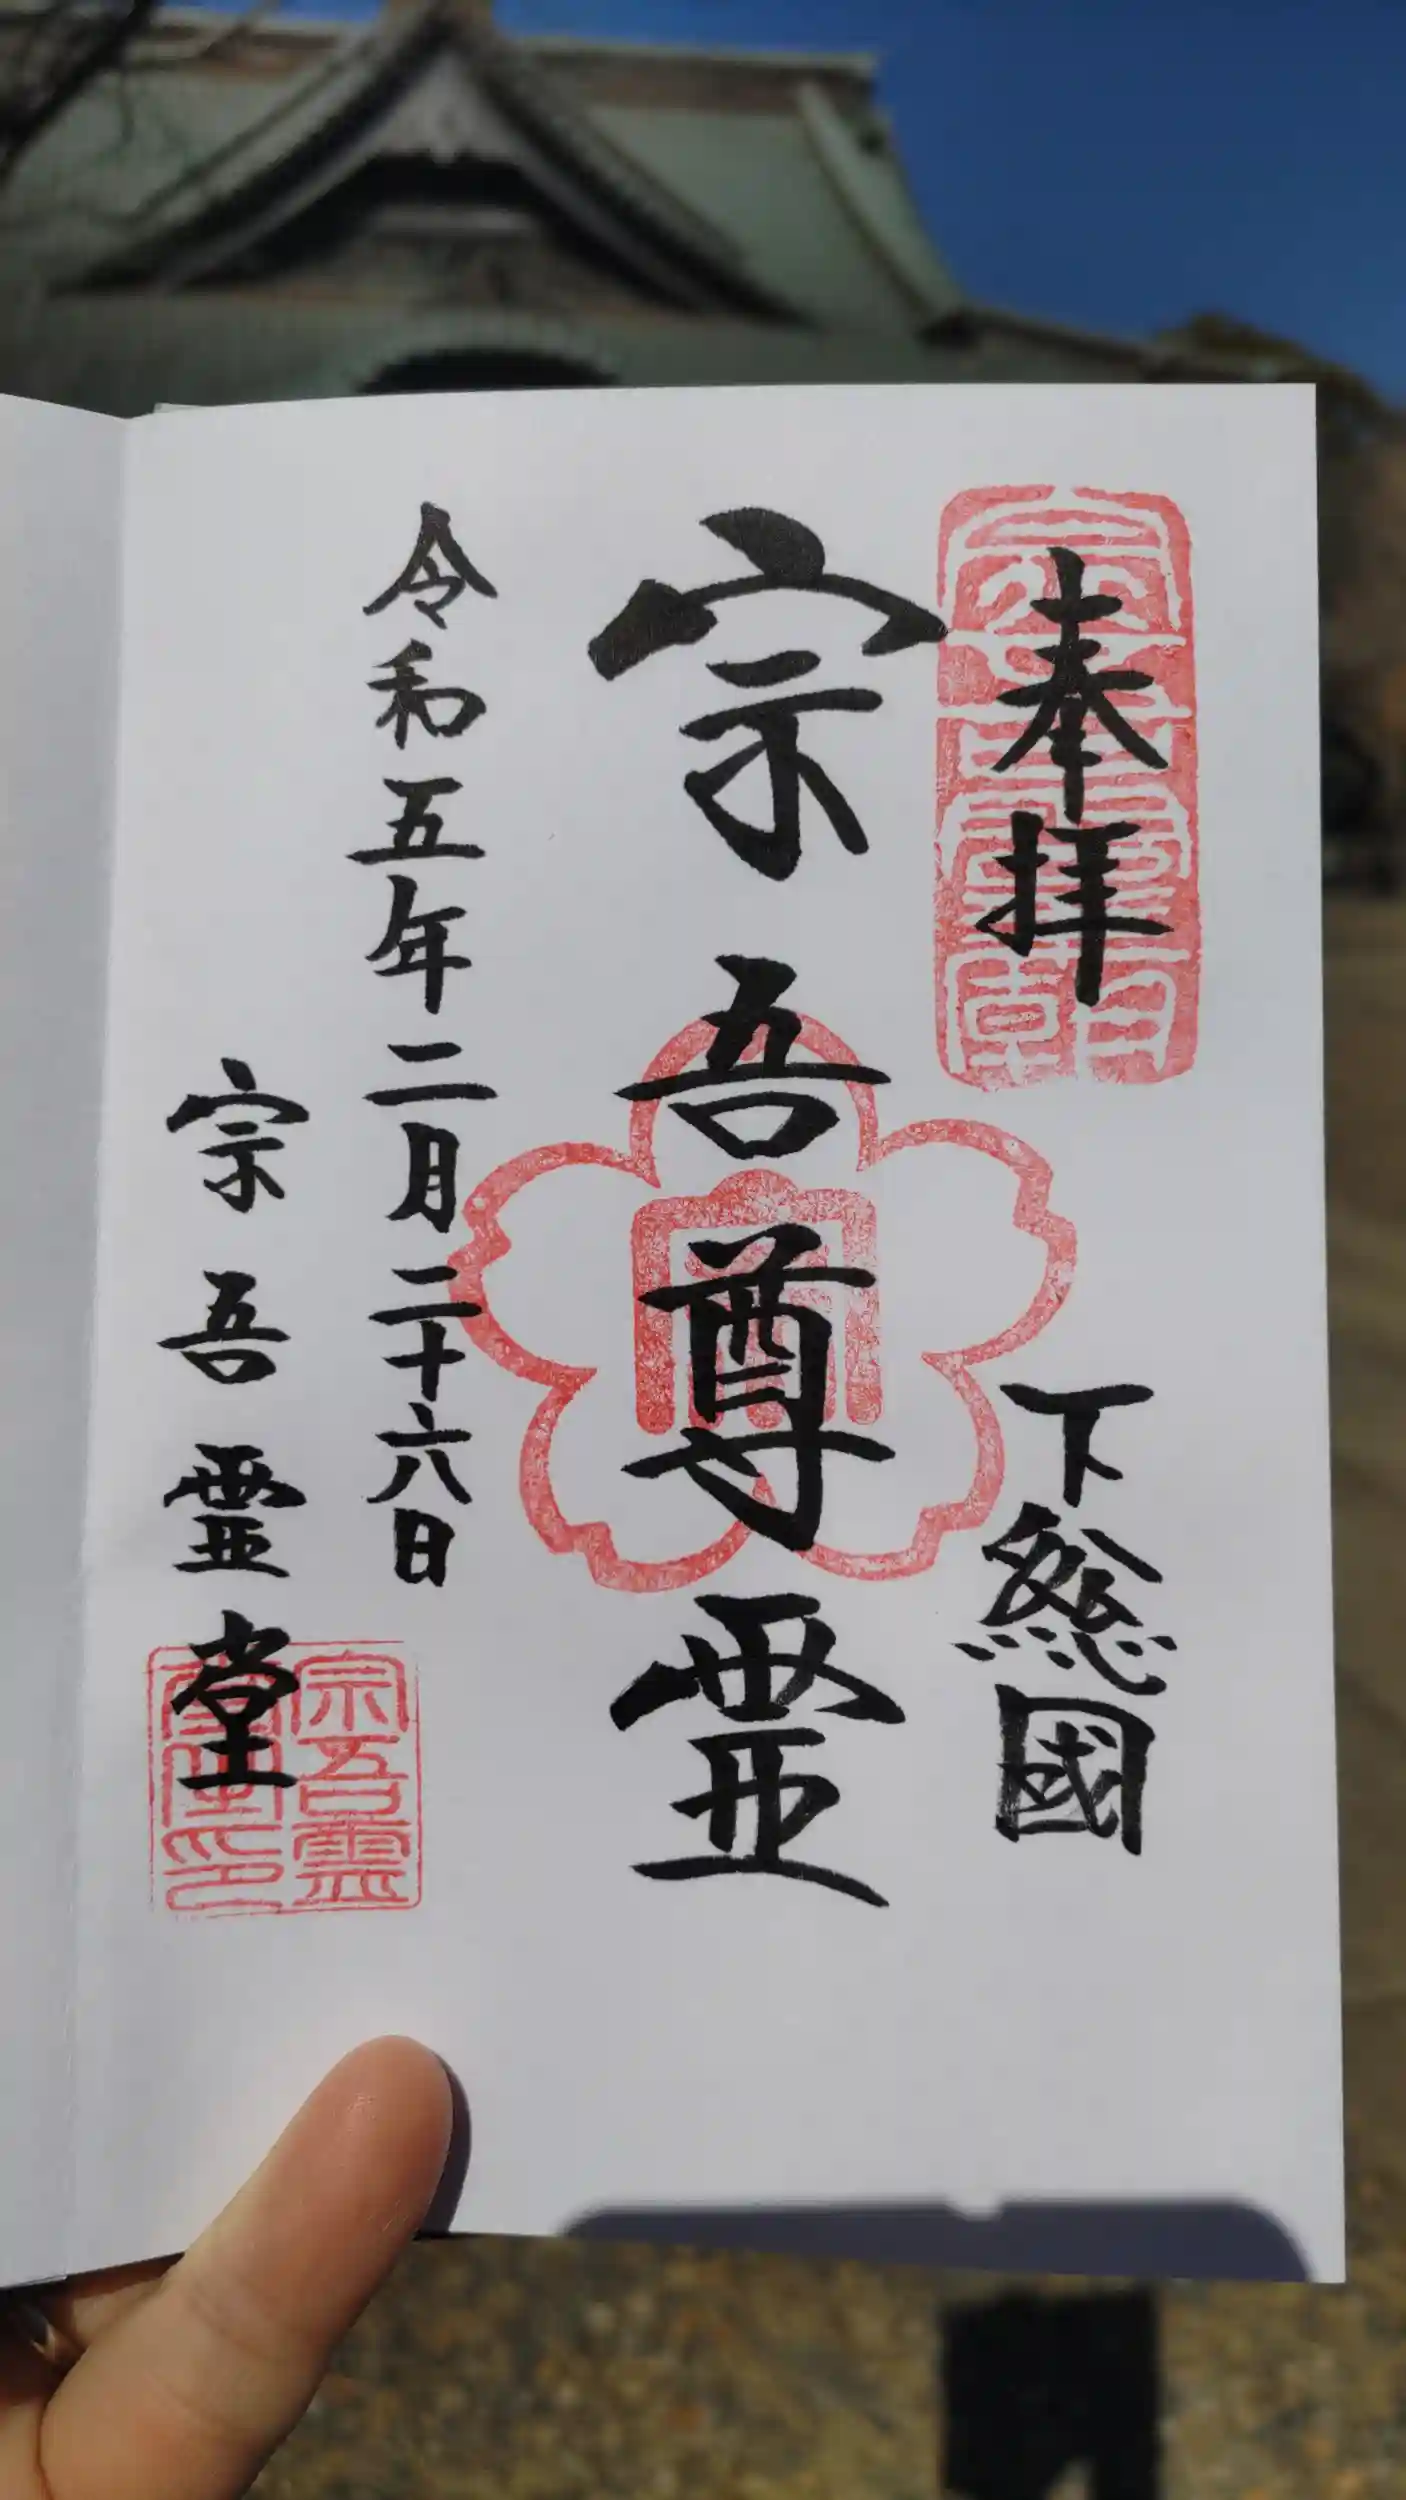 奉拝
下総國
宗吾尊霊
令和五年二月二十六日
宗吾霊堂
宗吾霊